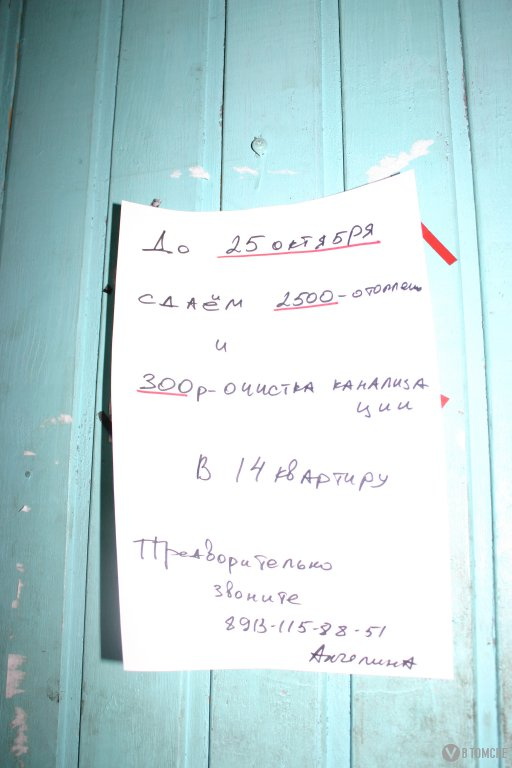 До 25 октября
сдаём 2500-отоплен
и
300р-очистка канализа
ции
В 14 квартиру
Предворительно
звоните
8913-115-88-51
Ангелина
V В ТОМСКЕ